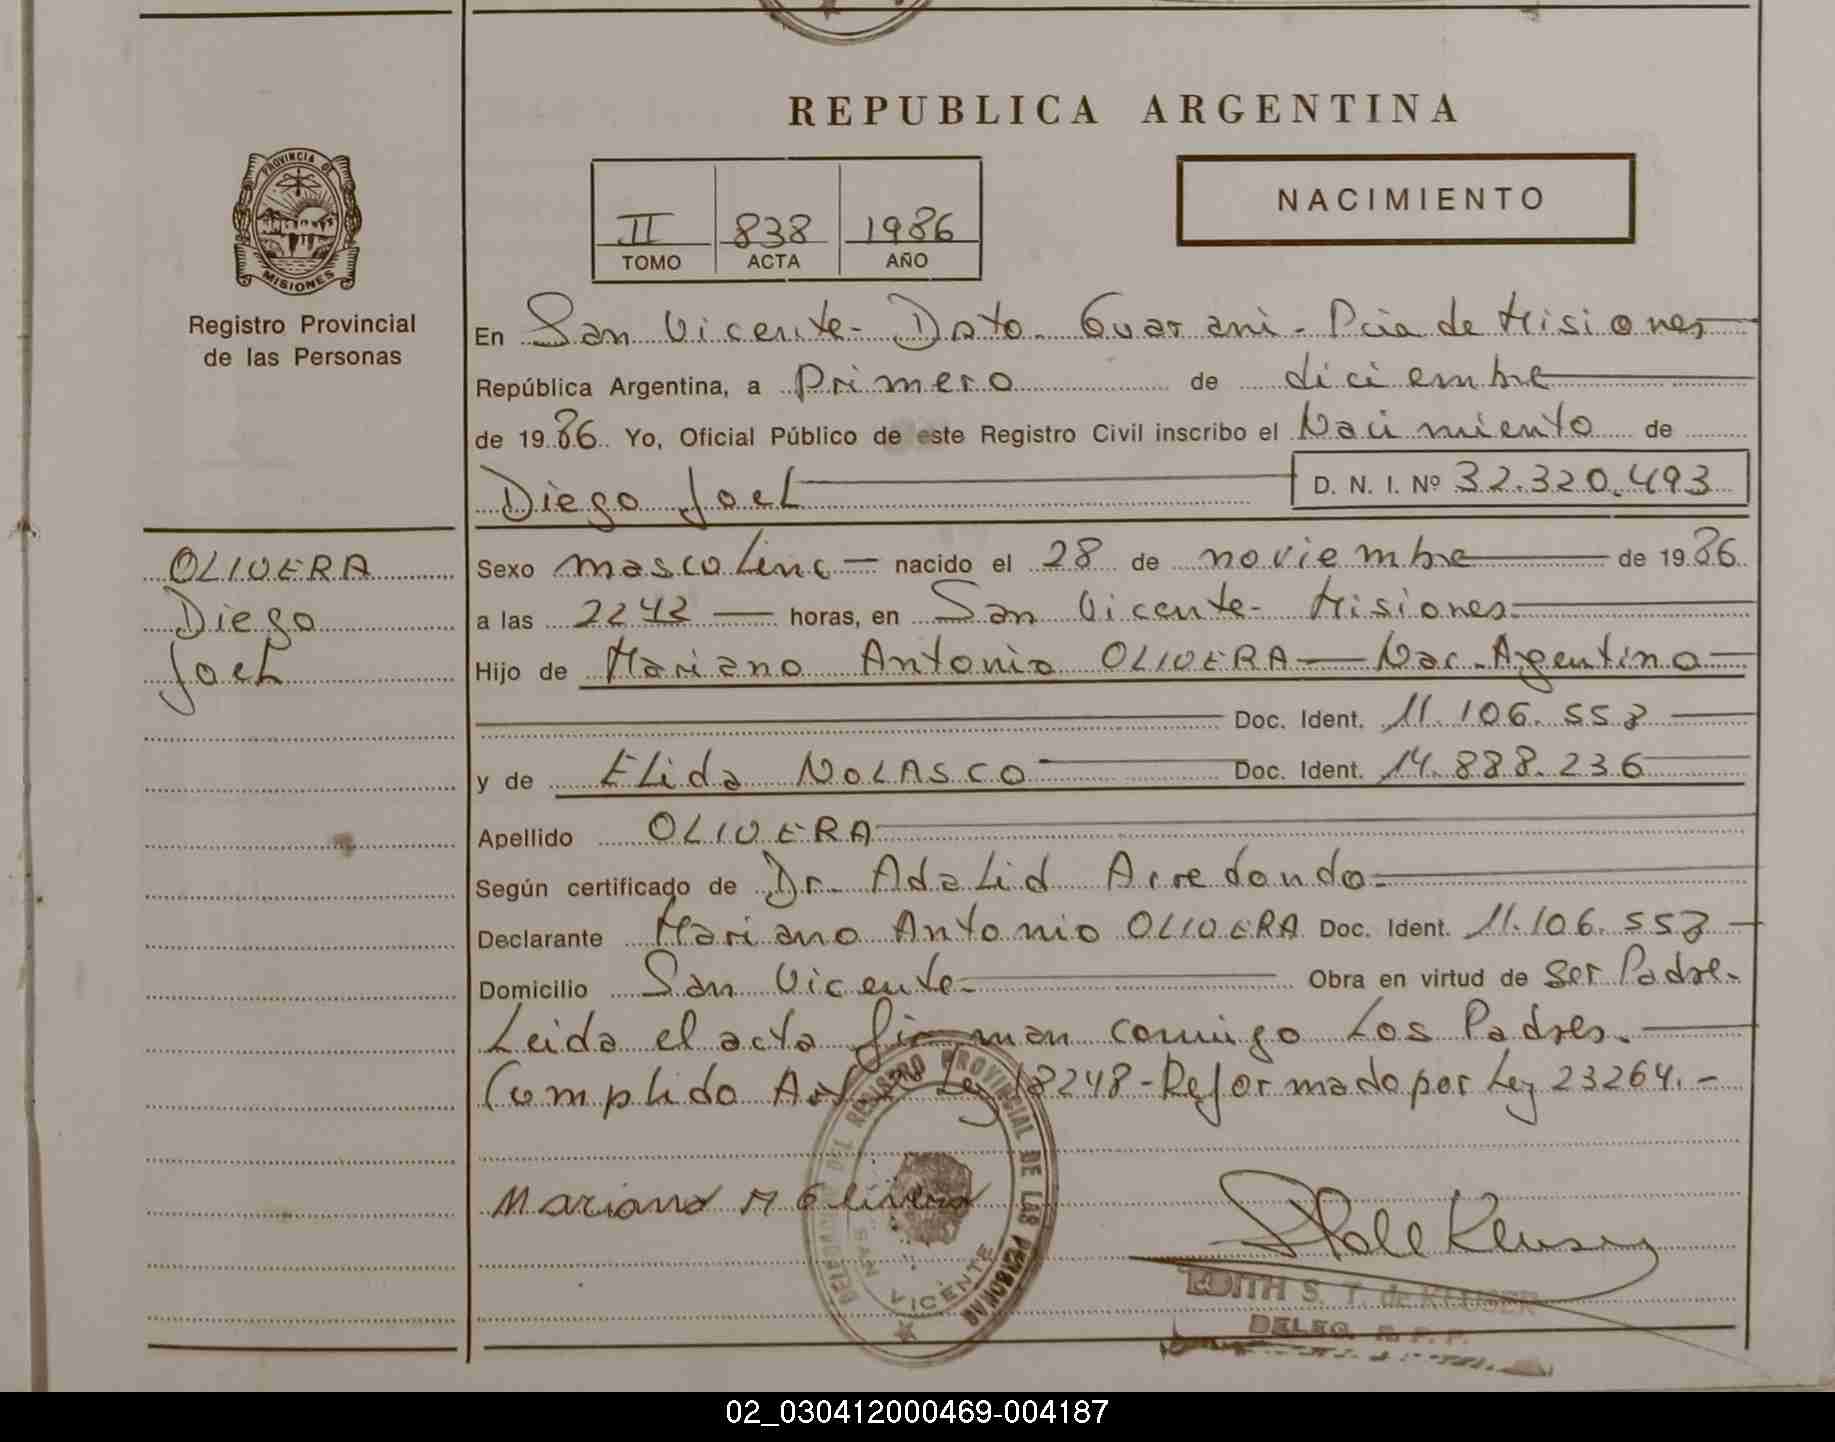 REPUBLICA ARGENTINA
PROVINCIA DE
MISIONES
Registro Provincial
de las Personas
II 838 1986
TOMO ACTA AÑO
NACIMIENTO
En San Vicente - Dpto. Guarani - Pcia de Misiones
República Argentina, a Primero de diciembre
de 1986 Yo, Oficial Público de este Registro Civil inscribo el Nacimiento de
Diego Joel D. N. I. Nº 32.320.493
OLIVERA
Diego
Joel
Sexo masculino nacido el 28 de noviembre de 1986
a las 2242 horas, en San Vicente - Misiones
Hijo de Mariano Antonio OLIVERA - Nac. Argentino
Doc. Ident. 11.106.553
y de Elida NOLASCO Doc. Ident. 14.888.236
Apellido OLIVERA
Según certificado de Dr. Adalid Arredondo
Declarante Mariano Antonio OLIVERA Doc. Ident. 11.106.553
Domicilio San Vicente Obra en virtud de ser Padre.
Leida el acta firman comigo Los Padres.
Cumplido Ley 18248 - Reformado por Ley 23264. -
Mariano A Olivera
DEL REGISTRO PROVINCIAL DE LAS PERSONAS
SAN VICENTE
EDITH S. T. de KLUSER
DELEG. R. P. P.
02_030412000469-004187